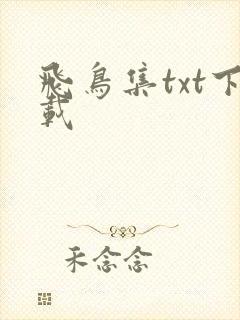 飛鳥集txt下
載
禾念念